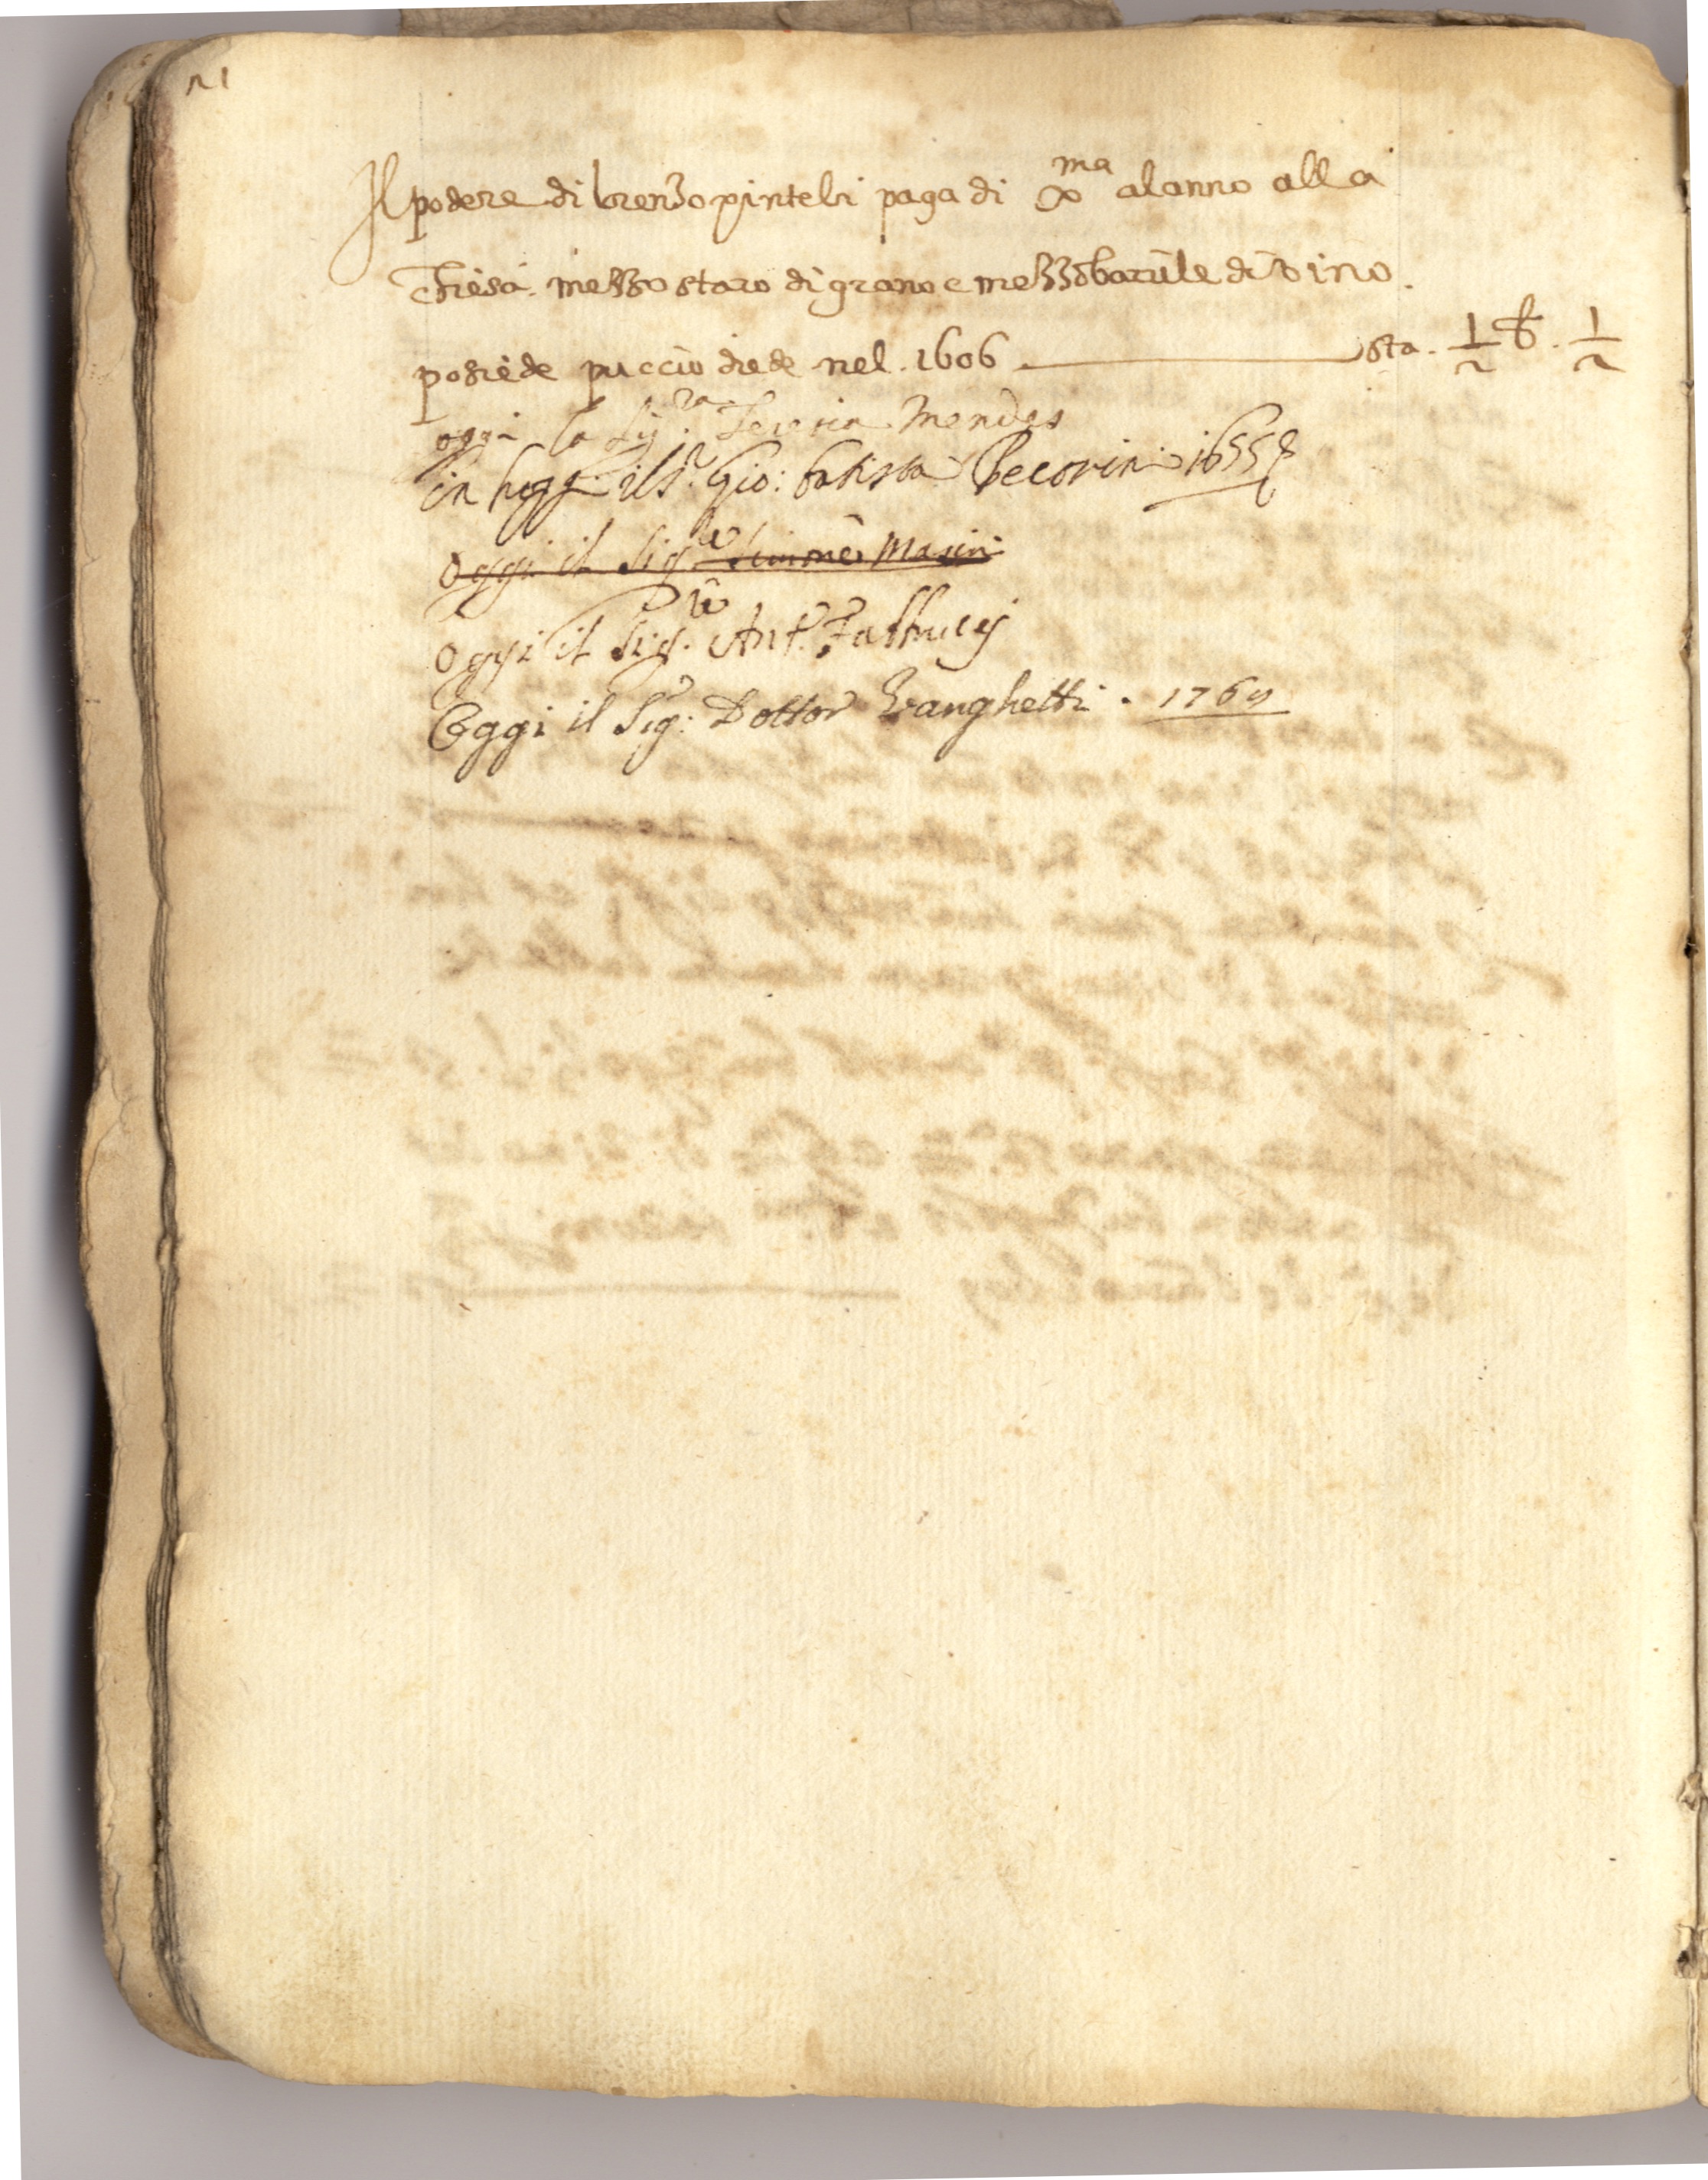 21
Il podere di lorenzo pinteli paga di Xma alanno alla
chiesa. mezzo staro di grano e mezzo barile di vino.
posiede puccio diede nel. 1606 sta. 1/2 b. 1/2
oggi la Sig.ra Mendes
in hoggi il S.r Gio: batista Pecorini 1655
Oggi il Sig.re Masini
Oggi il Sig.re Ant.o Fabbrucij
Oggi il Sig.e Dottor Vanghetti. 1769